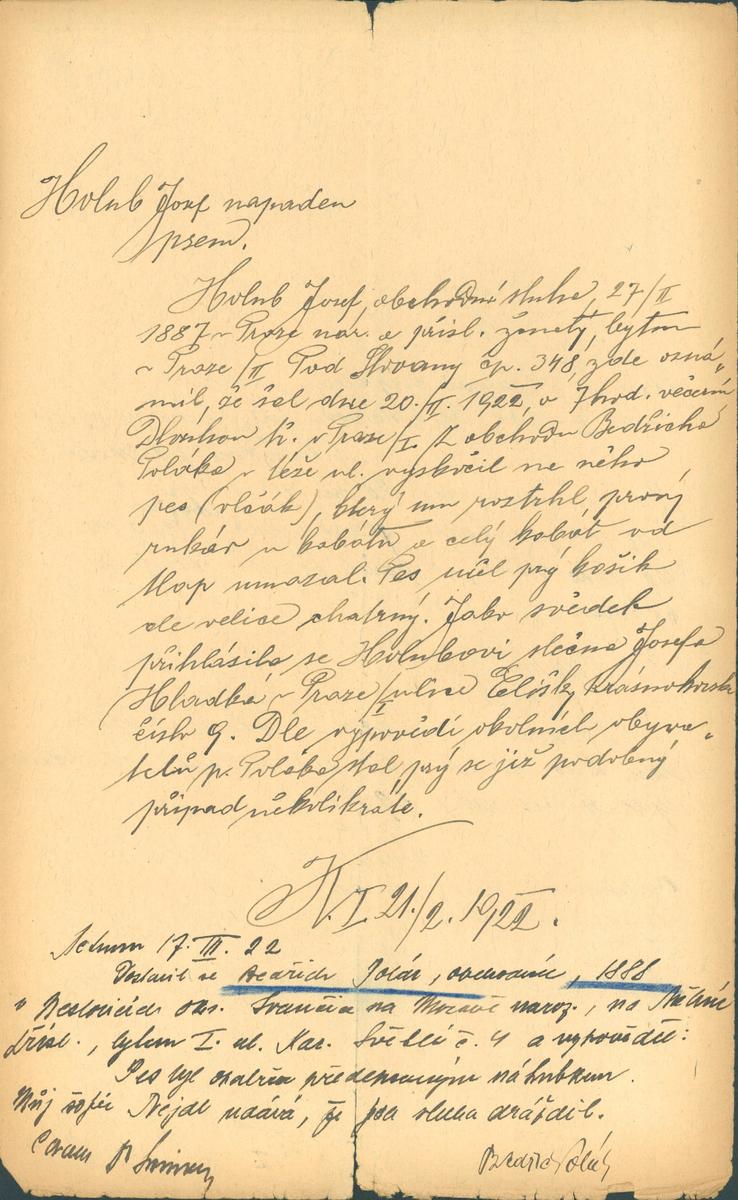 Holub Josef napaden
psem.
Holub Josef, obchodní sluha, 27/II
1887 v Praze nar. a přísl. ženatý, bytem
v Praze/II Pod Slovany čp. 348, zde ozná„
mil, že šel dne 20./II. 1922, v 7 hod. večerní
Dlouhou tř. v Praze/I. Z obchodu Bedřicha
Poláka v téže ul. vyskočil na něho
pes (vlčák), který mu roztrhl pravý
rukáv u kabátu a celý kabát od
tlap umazal. Pes měl prý košík
ale velice chatrný. Jako svědek
přihlásila se Holubovi slečna Josefa
Hladká v Praze/I ulice Elišky Krásnohorské
číslo 9. Dle výpovědí okolních obyva„
telů p. Poláka stal prý se již podobný
případ několikráte.
K. I. 21./2. 1922.
Actum 17. III. 22
Dostavil se Bedřich Polák, obchodník, 1888
v okr. na Moravě naroz., na
přísl., bytem I. ul. Kar. Světlé č. 4 a vypověděl:
Pes byl opatřen předepsaným náhubkem.
Můj šofér Nejdl udává, že psa sluha dráždil.
Coram
Bedřich Polák